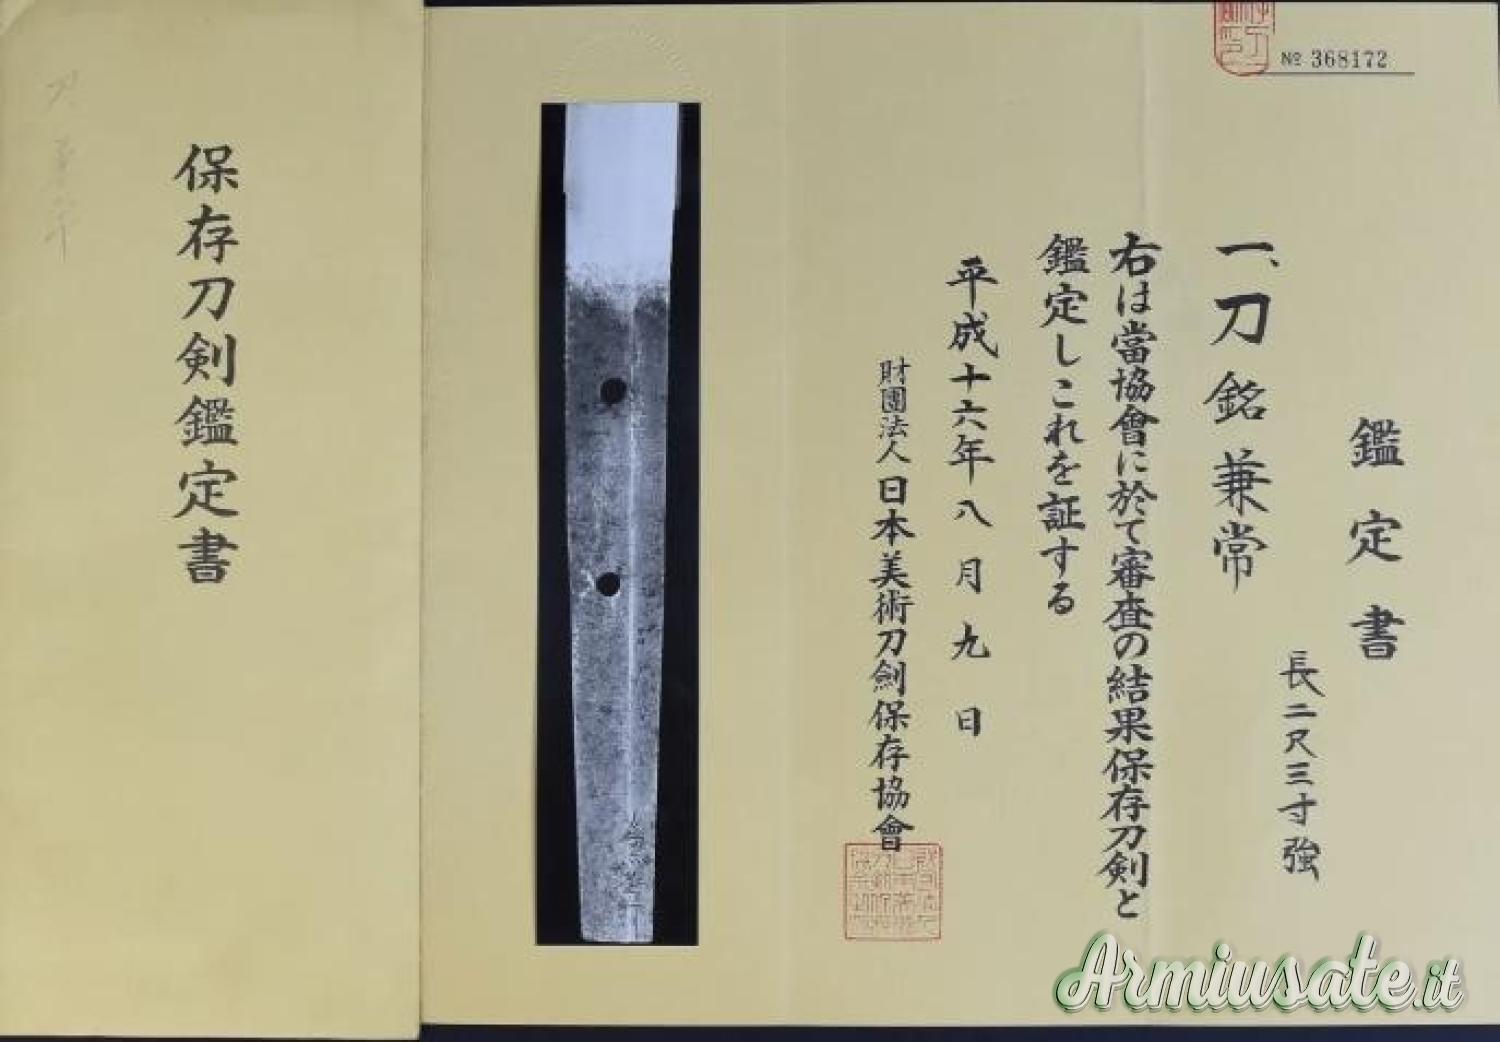 保存刀剣鑑定書
№ 368172
鑑定書
一、刀 銘 兼常
長二尺三寸強
右は當協會に於て審査の結果保存刀剣と
鑑定しこれを証する
平成十六年八月九日
財團法人日本美術刀劍保存協會
Armiusate.it